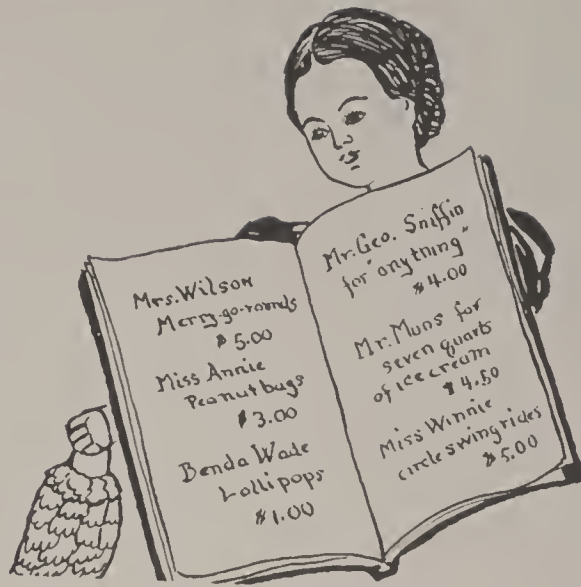 Mrs. Wilson
Merry-go-rounds
$5.00
Miss Annie
Peanut bugs
$3.00
Benda Wade
Lollipops
$1.00
Mr. Geo. Sniffin
for "anything"
$4.00
Mr. Muns for
seven quarts
of ice cream
$4.50
Miss Winnie
circle swing rides
$5.00